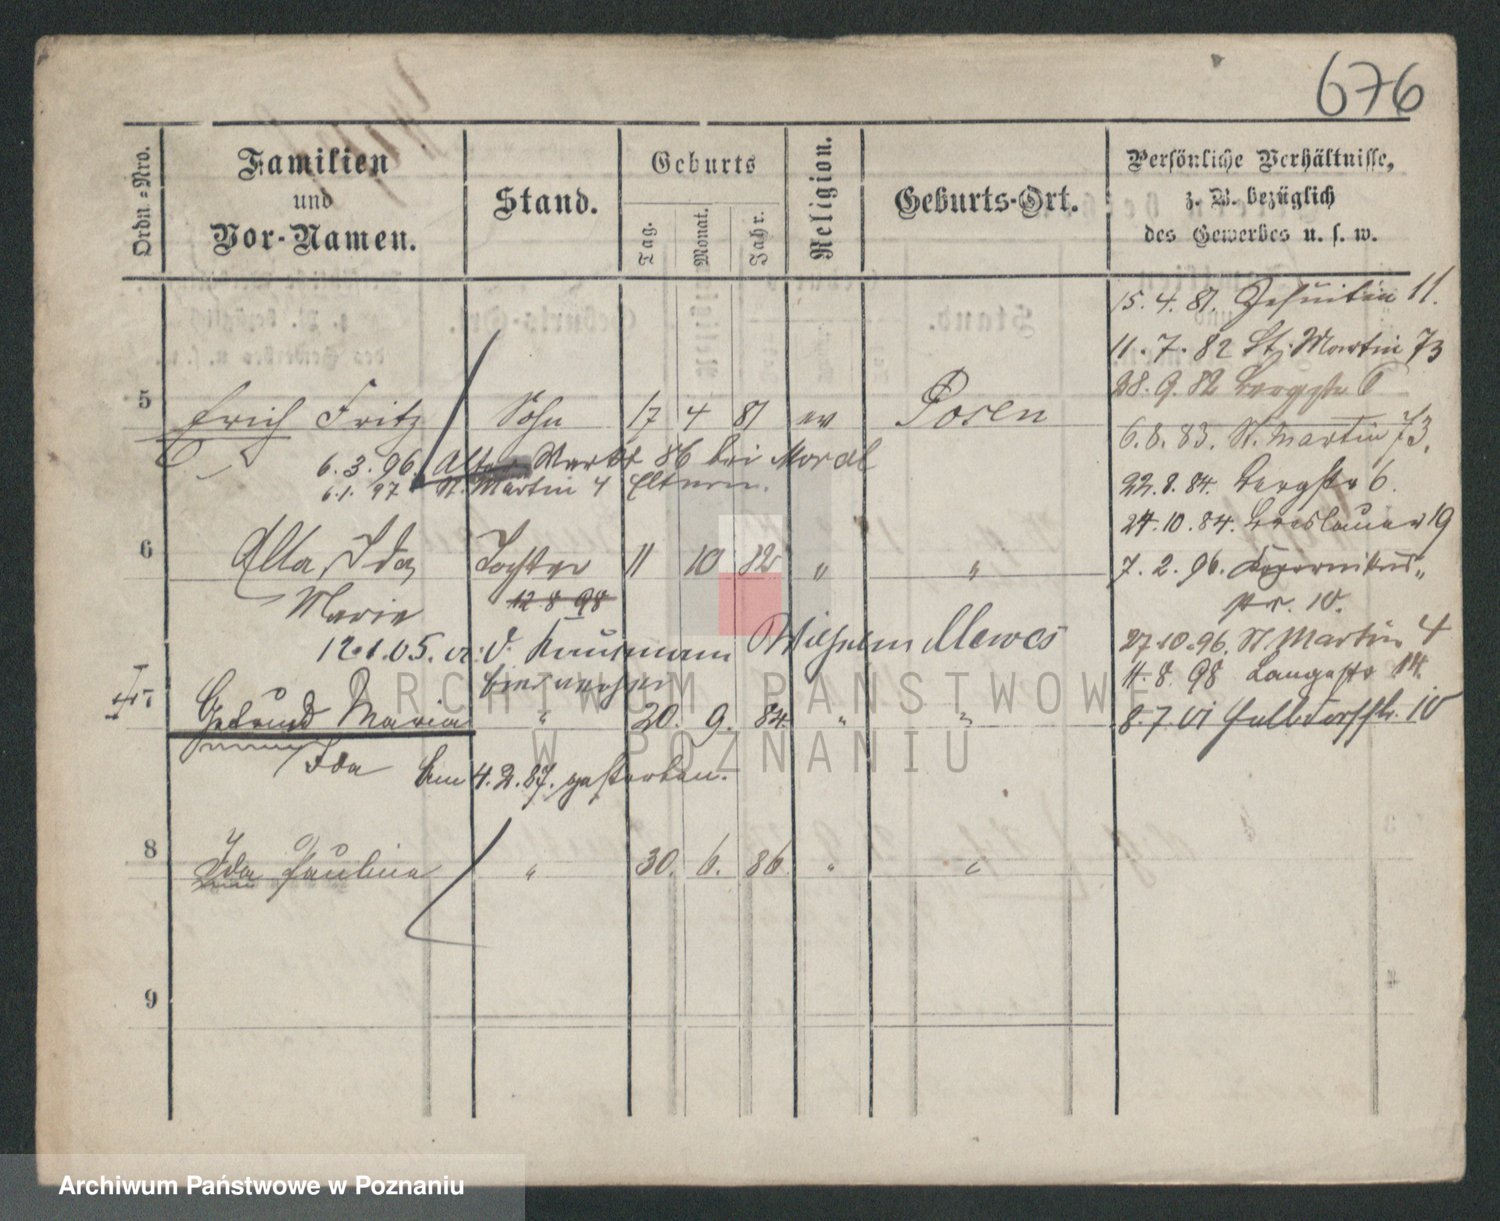 676
Ordn.-Nro.
Familien
und
Vor-Namen.
Stand.
Geburts
Tag.
Monat.
Jahr.
Religion.
Geburts-Ort.
Persönliche Verhältnisse,
z. B. bezüglich
des Gewerbes u. s. w.
15. 4. 81. Jesuitin 11.
11. 7. 82 St. Martin 73
28. 9. 82 Bergstr 6
5 Erich Fritz Sohn 17 4 81 ev Posen
6. 8. 83. St. Martin 73.
6. 3. 96. Alter Markt 86 bei Mordl
6. 1. 97 St. Martin 4 Eltern.
22. 8. 84. Bergstr 6.
24. 10. 84. Breslauer 19
6 Ella Ida Tochter 11 10 82 " "
7. 2. 96.
str. 10.
Marie 12 8 98
12. 1. 05. Kaufmann Wilhelm Mewes
27. 10. 96. St Martin 4
11. 8. 98 Langestr 14.
7 Gertrud Maria " 20. 9. 84. " "
8. 7. 01 10
Ida am 4. 2. 87. gestorben.
8 Ida Pauline " 30. 6. 86 " "
9
ARCHIWUM PAŃSTWOWE
W POZNANIU
Archiwum Państwowe w Poznaniu